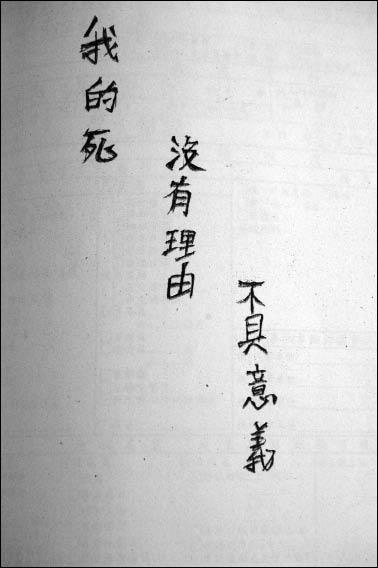 我的死
沒有理由
不具意義